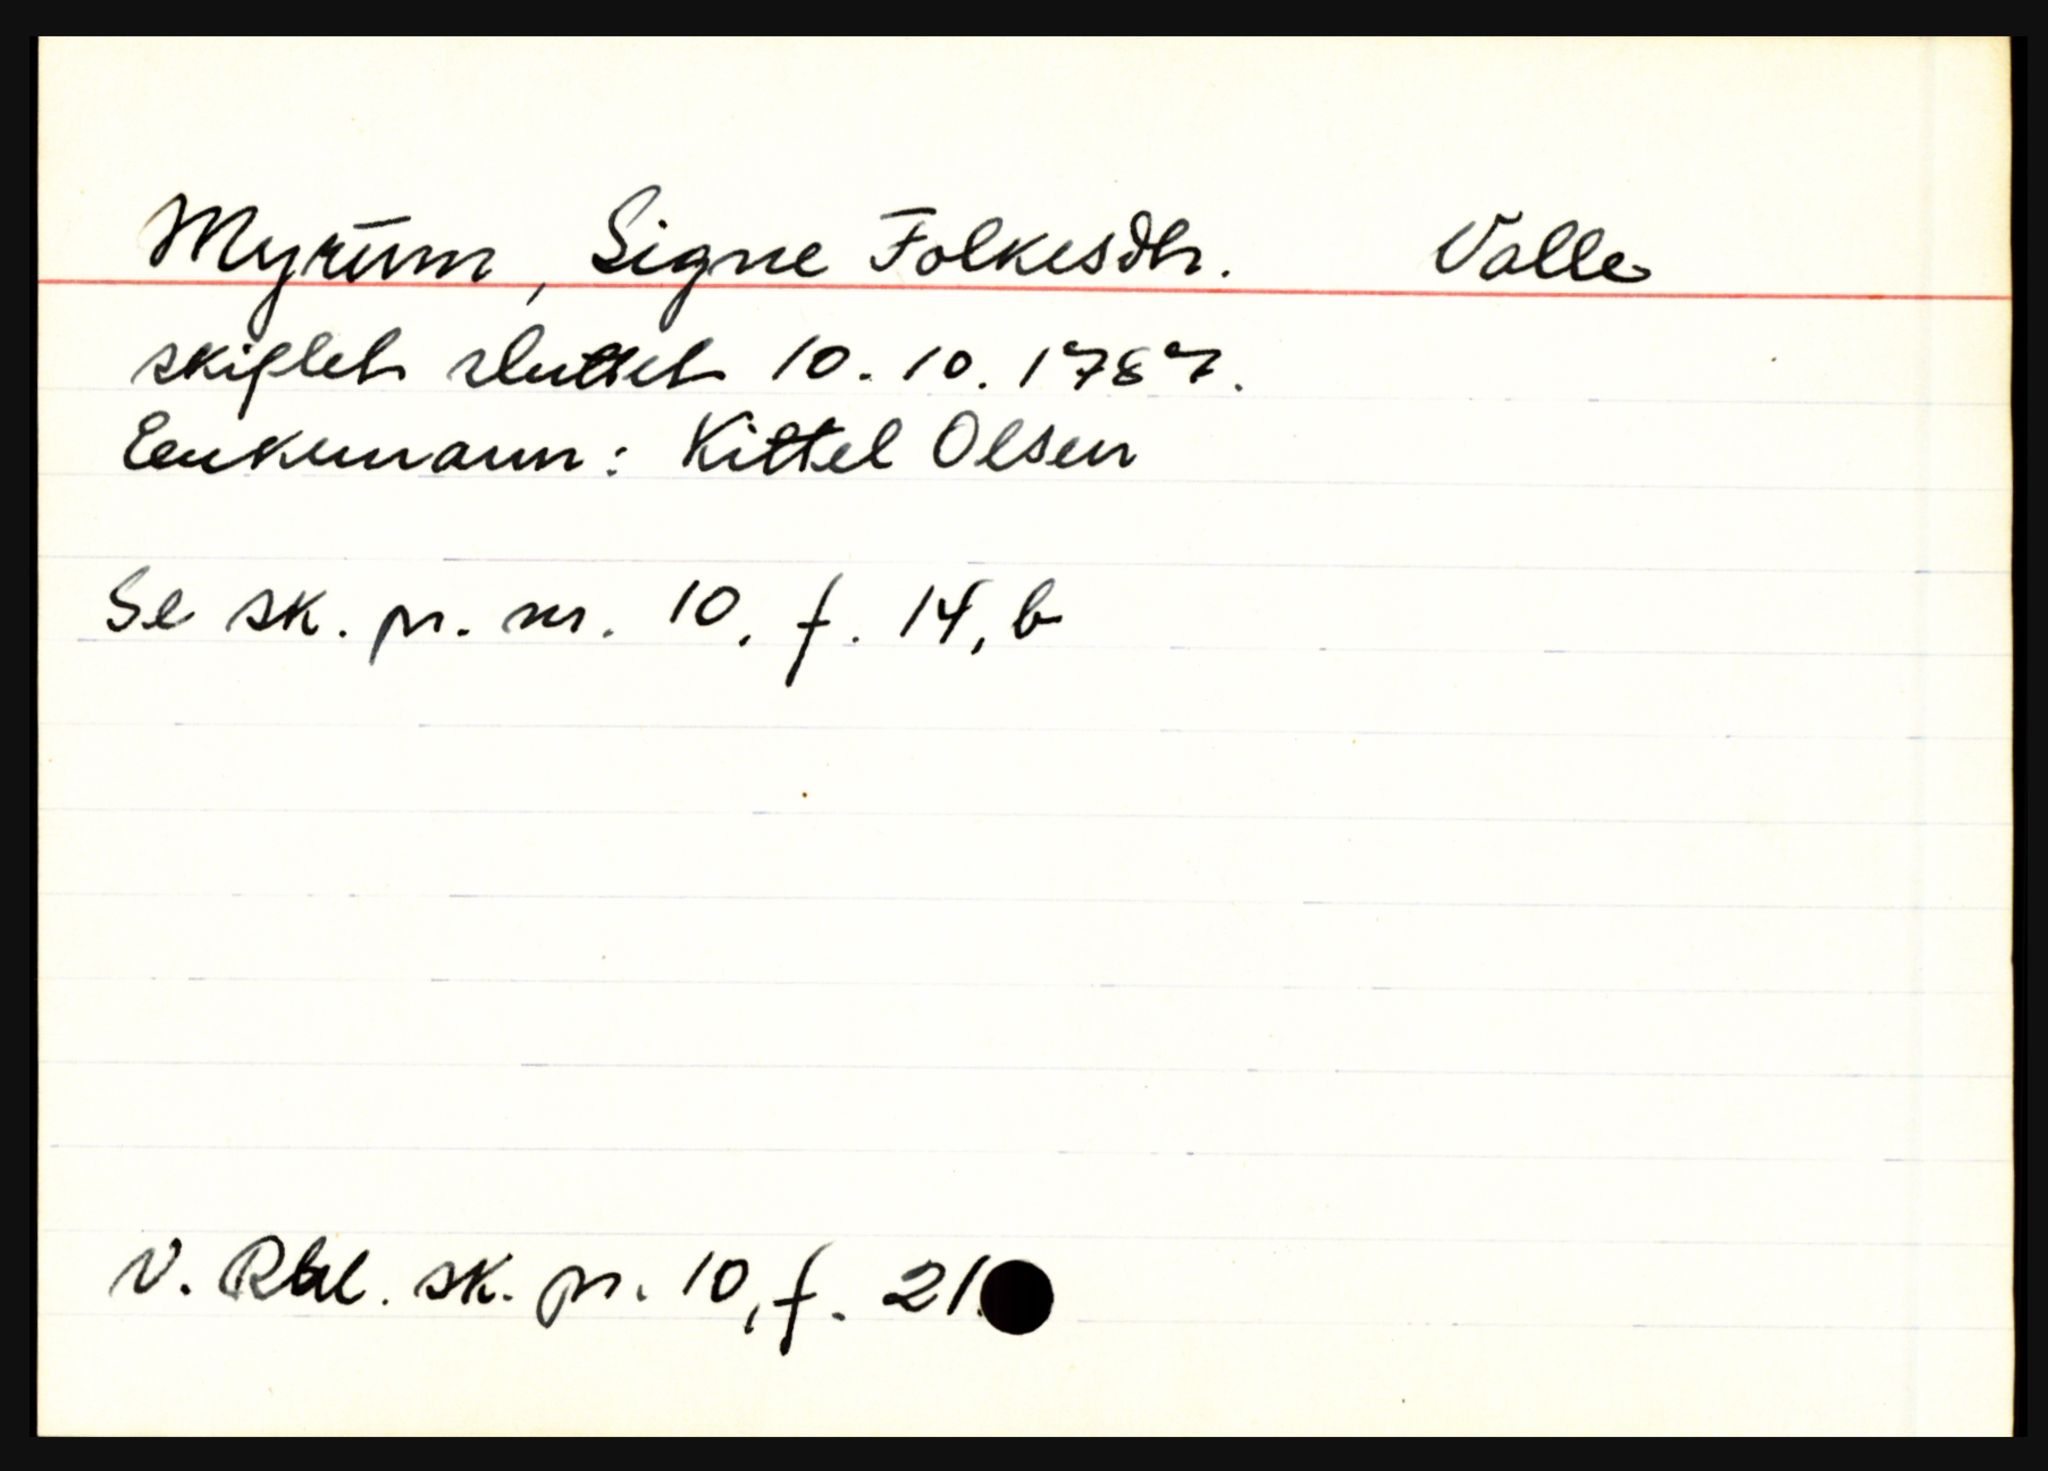 Myrum, Signe Folkesdtr. Valle
skiftet sluttet 10.10.1787.
Enkemann: Kittel Olsen
Se sk. pr. nr. 10, f. 14, b
V. Rbl. sk. pr. 10, f. 21.